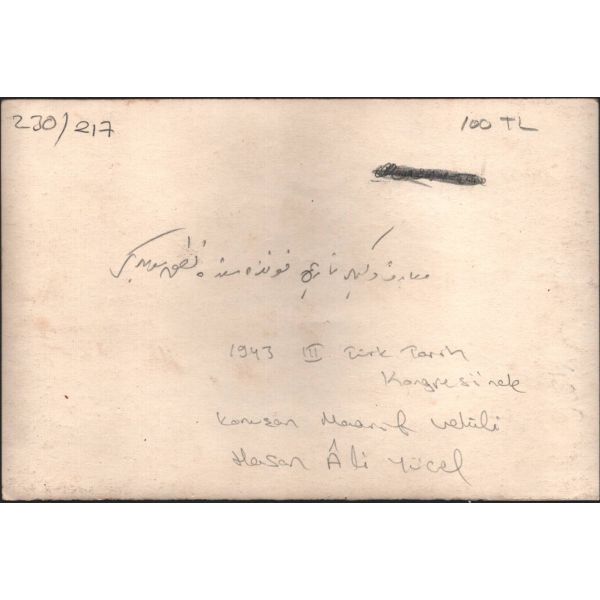 230/217
100 TL
معارف وكیلی تاریخ قونغره سنده نطق سویلركن
1943 III Türk Tarih
Kongresi'nde
Konuşan Maarif Vekili
Hasan Âli Yücel